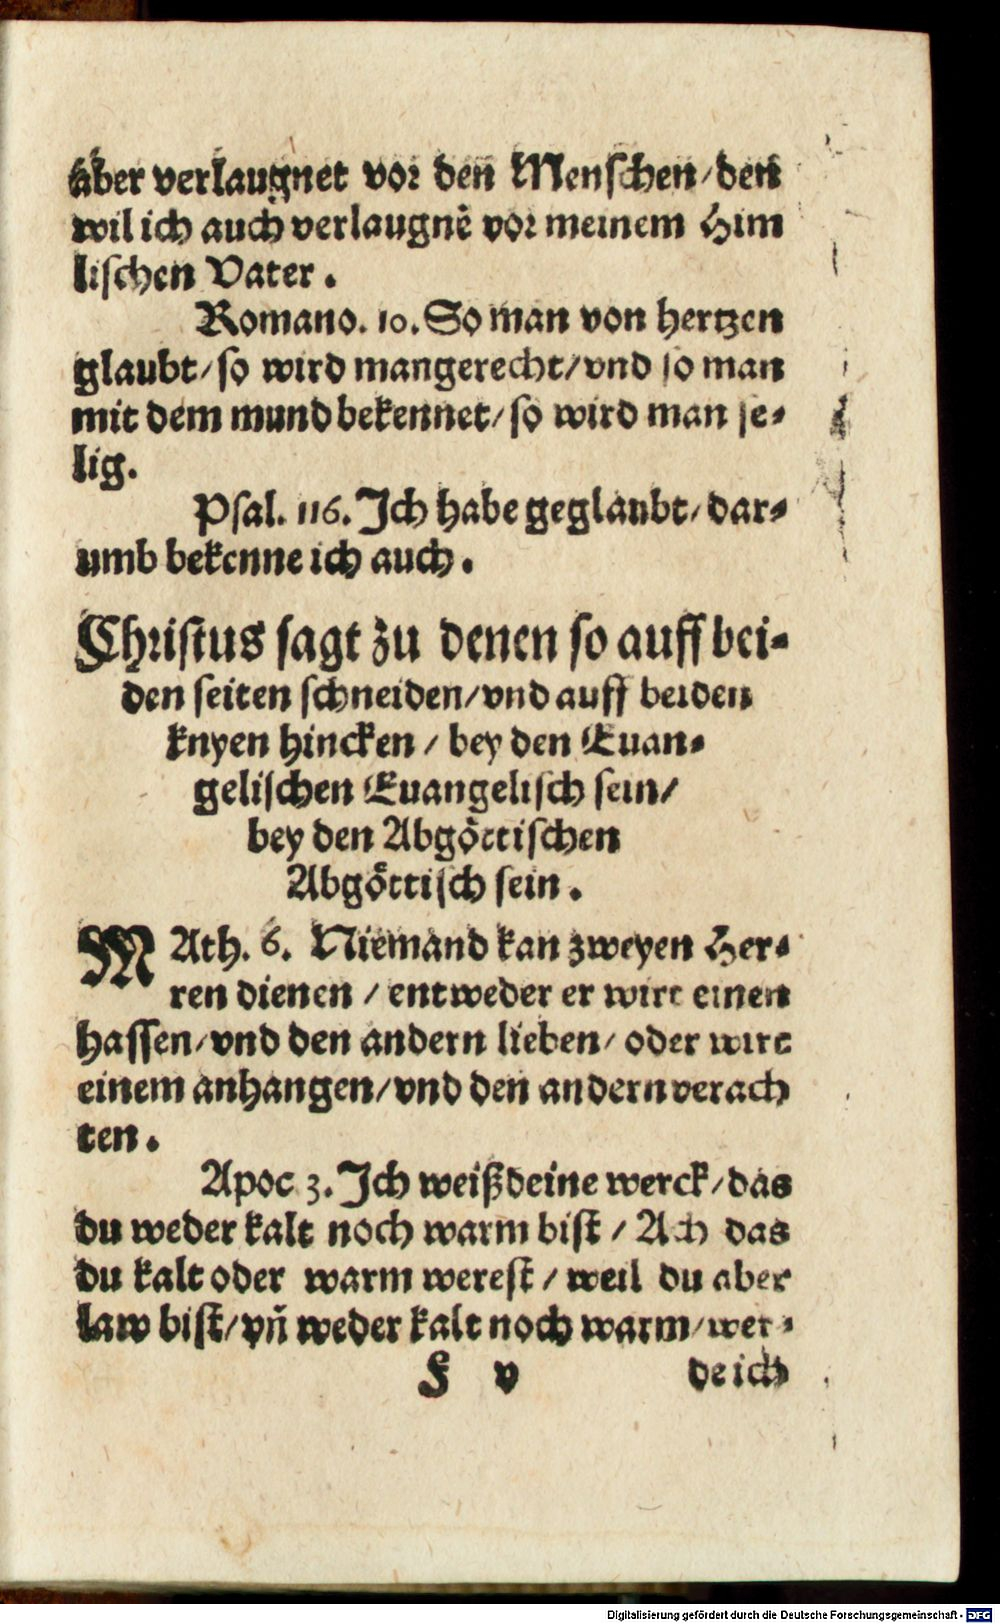 aber verlaugnet vor den Menschen/den
wil ich auch verlaugnẽ vor meinem Him
lischen Vater.
Romano. 10. So man von hertzen
glaubt/so wird mangerecht/vnd so man
mit dem mund bekennet/so wird man se-
lig.
Psal. 116. Ich habe geglaubt/dar-
umb bekenne ich auch.
Christus sagt zu denen so auff bei-
den seiten schneiden/vnd auff beiden
knyen hincken/bey den Euan-
gelischen Euangelisch sein/
bey den Abgöttischen
Abgöttisch sein.
MAth. 6. Niemand kan zweyen Her-
ren dienen/entweder er wirt einen
hassen/vnd den andern lieben/oder wirt
einem anhangen/vnd den andern verach
ten.
Apoc 3. Ich weiß deine werck/das
du weder kalt noch warm bist/Ach das
du kalt oder warm werest/weil du aber
law bist/vñ weder kalt noch warm/wer-
F v de ich
Digitalisierung gefördert durch die Deutsche Forschungsgemeinschaft - DFG